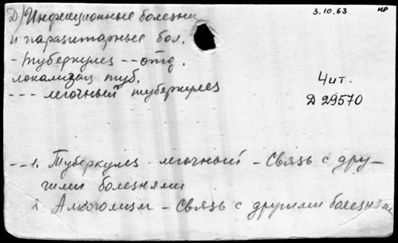 Д) Инфекционные болезни
3.10.63
НР
и парацитарные бол.
- Туберкулез -- отд.
локализац туб.
--- легочный туберкулез
Чит.
Д 29570
-- 1. Туберкулез легочный - Связь с дру-
гими болезнями
2. Алкоголизм - Связь с другими болезнями